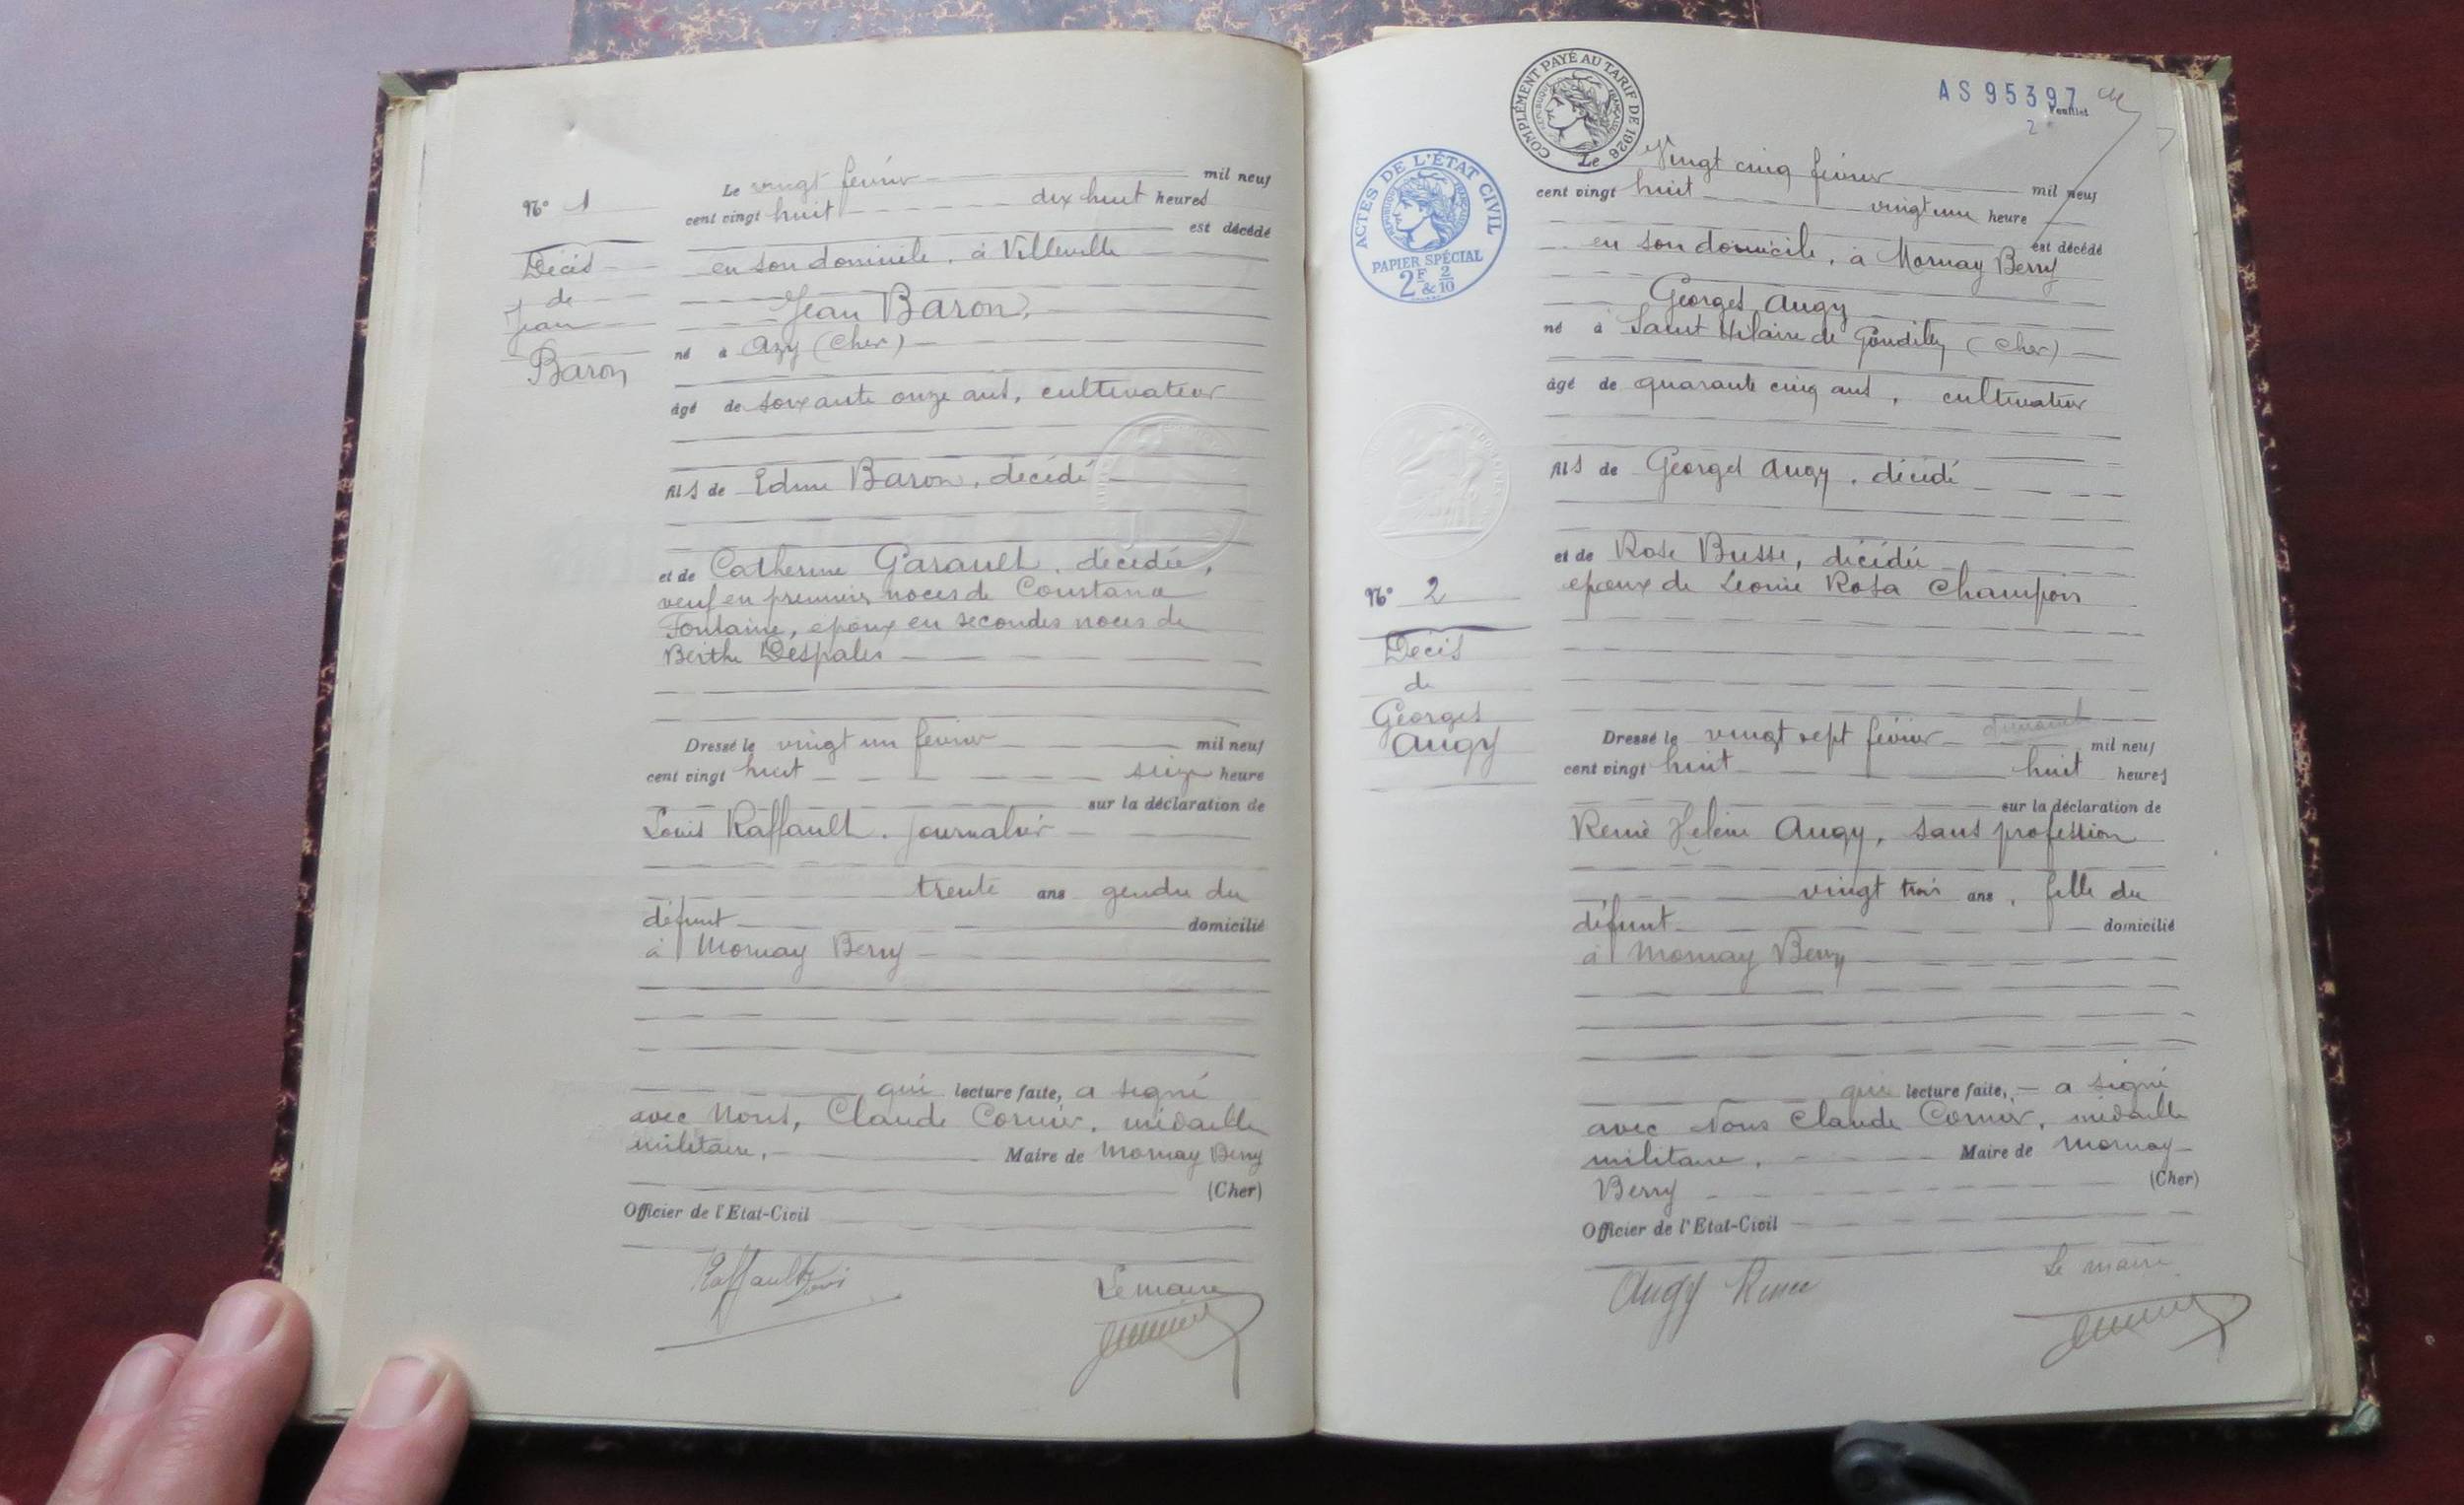 N° 1
Décès
de
Jean
Baron
Le vingt février mil neuf
cent vingt huit dix huit heures
est décédé
en son domicile, à Villeville
Jean Baron,
né à Azy (Cher)
âgé de soixante onze ans, cultivateur
fils de Edme Baron, décédé
et de Catherine Garault, décédée,
veuf en premières noces de Constance
Fontaine, epoux en secondes noces de
Berthe Despales
Dressé le vingt un février mil neuf
cent vingt huit seize heure
sur la déclaration de
Louis Raffault, journalier
trente ans gendre du
défunt domicilié
à Mornay Berry
qui lecture faite, a signé
avec Nous, Claude Cornier, médaille
militaire, Maire de Mornay Berry
(Cher)
Officier de l'Etat-Civil
Raffault Louis
Le maire
COMPLÉMENT PAYÉ AU TARIF DE 1926
RÉPUBLIQUE FRANÇAISE
AS 95397
Feuillet
2
ACTES DE L'ÉTAT CIVIL
RÉPUBLIQUE FRANÇAISE
PAPIER SPÉCIAL
2F & 2/10
Le Vingt cinq février mil neuf
cent vingt huit vingt une heure
est décédé
en son domicile, à Mornay Berry
Georges Augy
né à Saint Hilaire de Gondilly (Cher)
âgé de quarante cinq ans, cultivateur
fils de Georges Augy, décédé
et de Rose Busse, décédée
epoux de Leonie Rosa Champion
N° 2
Décès
de
Georges
Augy
Dressé le vingt sept février mil neuf
cent vingt huit huit heures
sur la déclaration de
Renée Helène Augy, sans profession
vingt trois ans, fille du
défunt domicilié
à Mornay Berry
qui lecture faite, a signé
avec Nous Claude Cornier, médaille
militaire, Maire de Mornay
Berry (Cher)
Officier de l'Etat-Civil
Augy Renée
Le maire